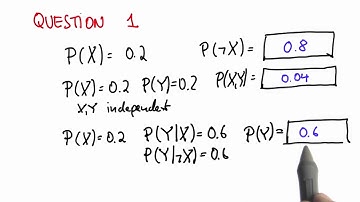 QUESTION 1
P(X) = 0.2 P(¬X) = 0.8
P(X) = 0.2 P(Y) = 0.2 P(X,Y) = 0.04
X,Y independent
P(X) = 0.2 P(Y|X) = 0.6 P(Y) = 0.6
P(Y|¬X) = 0.6